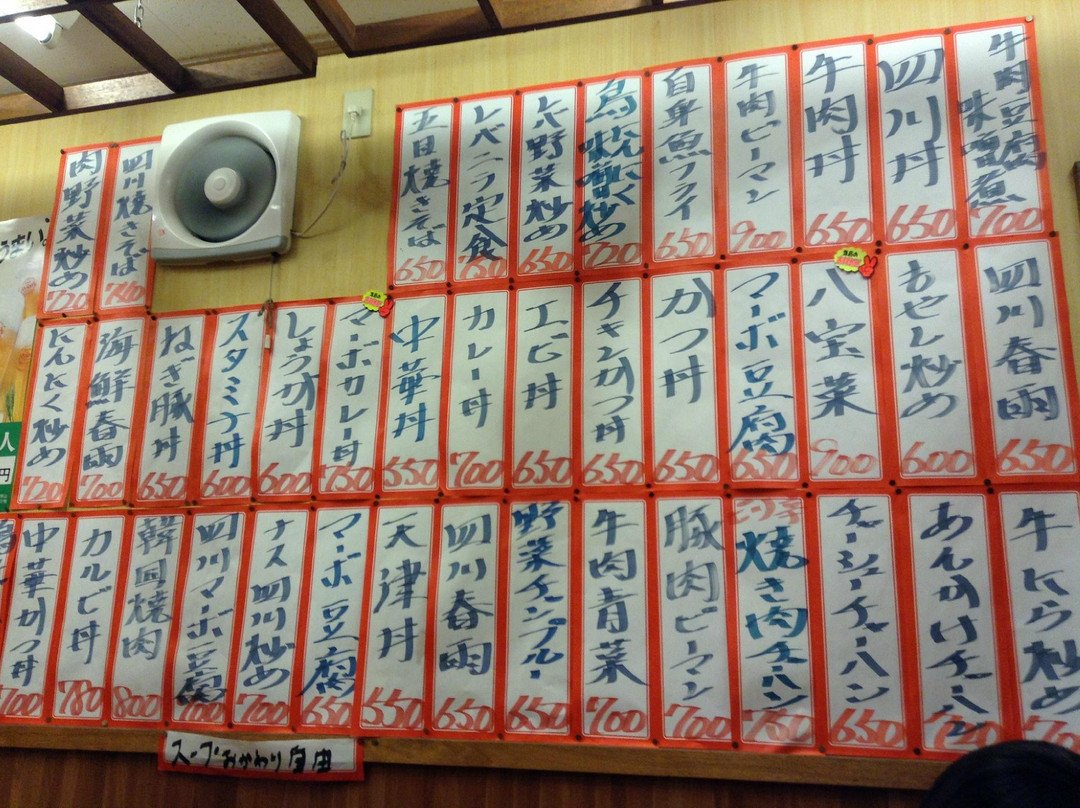 牛肉豆腐味噌煮 700
四川丼 650
牛肉丼 650
牛肉ピーマン 900
白身魚フライ 650
レバニラ定食 750
五目焼きそば 650
四川焼きそば 760
肉野菜炒め 720
四川春雨 650
もやし炒め 600
八宝菜 900
マーボ豆腐 650
かつ丼 650
チキンかつ丼 650
エビ丼 650
カレー丼 700
中華丼 650
マーボカレー丼 750
しょうが丼 600
スタミナ丼 600
ねぎ豚丼 650
海鮮春雨 700
にんにく炒め 720
牛にら炒め
あんかけチャーハン
チャーシューチャーハン 650
焼き肉チャーハン 750
豚肉ピーマン 700
牛肉青菜 700
野菜チャンプルー 650
四川春雨 650
天津丼 550
マーボ豆腐 650
ナス四川炒め 700
四川マーボ豆腐 700
韓国焼肉 800
カルビ丼 780
中華かつ丼 700
スープおかわり自由
人
円